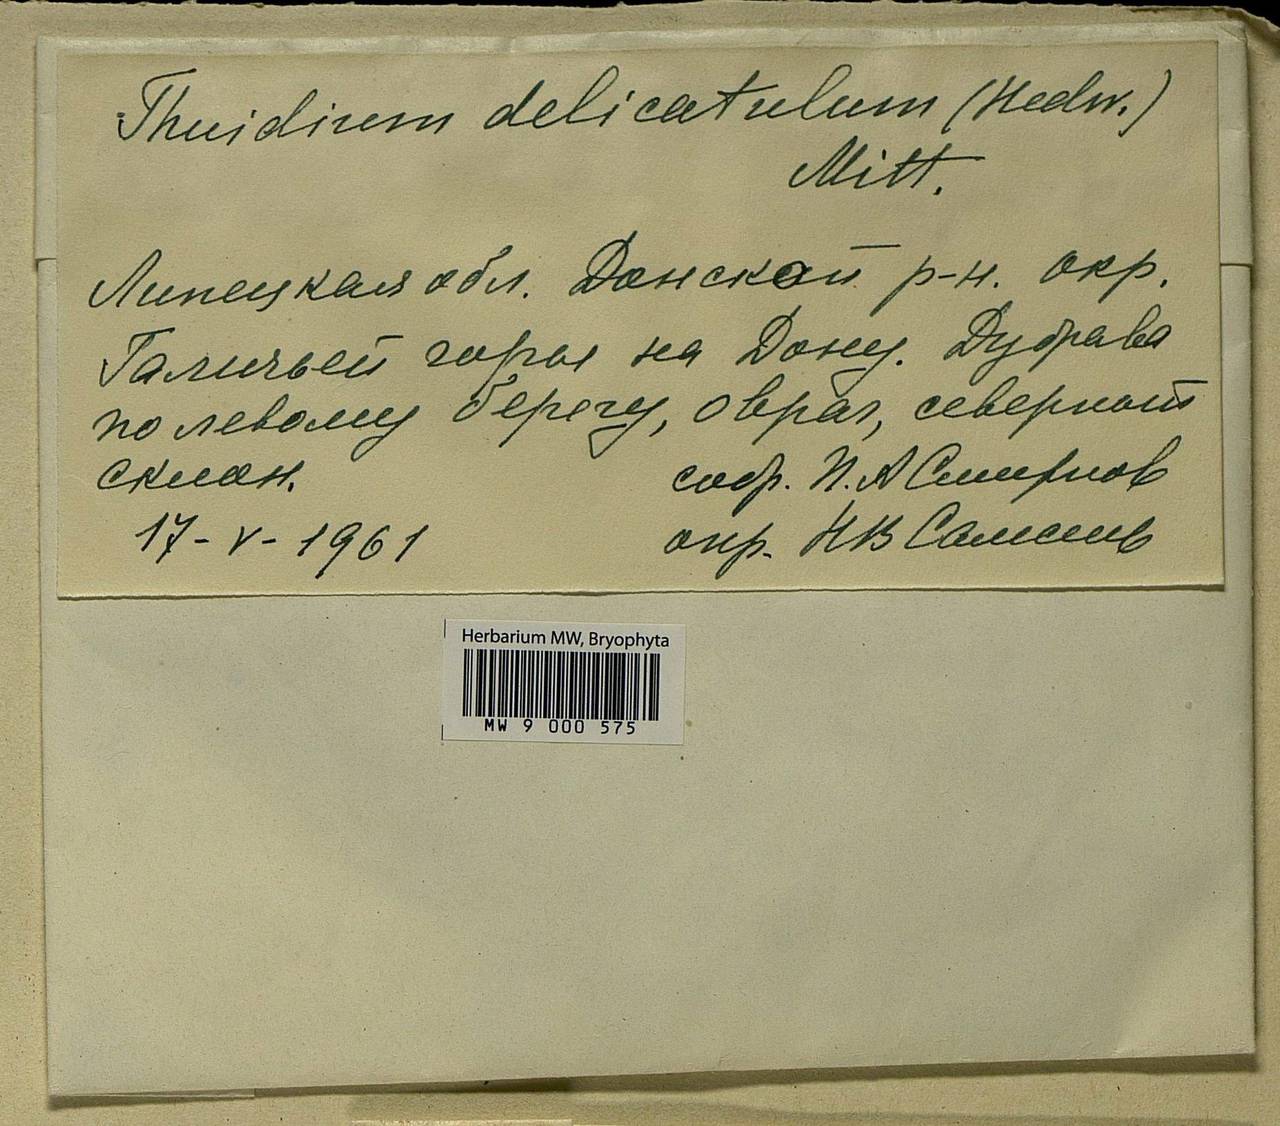 Thuidium delicatulum (Hedw.)
Mitt.
Липецкая обл. Донской р-н. окр.
Галичьей горы на Дону. Дубрава
по левому берегу, овраг, северный
склон.
собр. П. А Смирнов
17-V-1961
опр. НВ Самсель
Herbarium MW, Bryophyta
MW 9 000 575